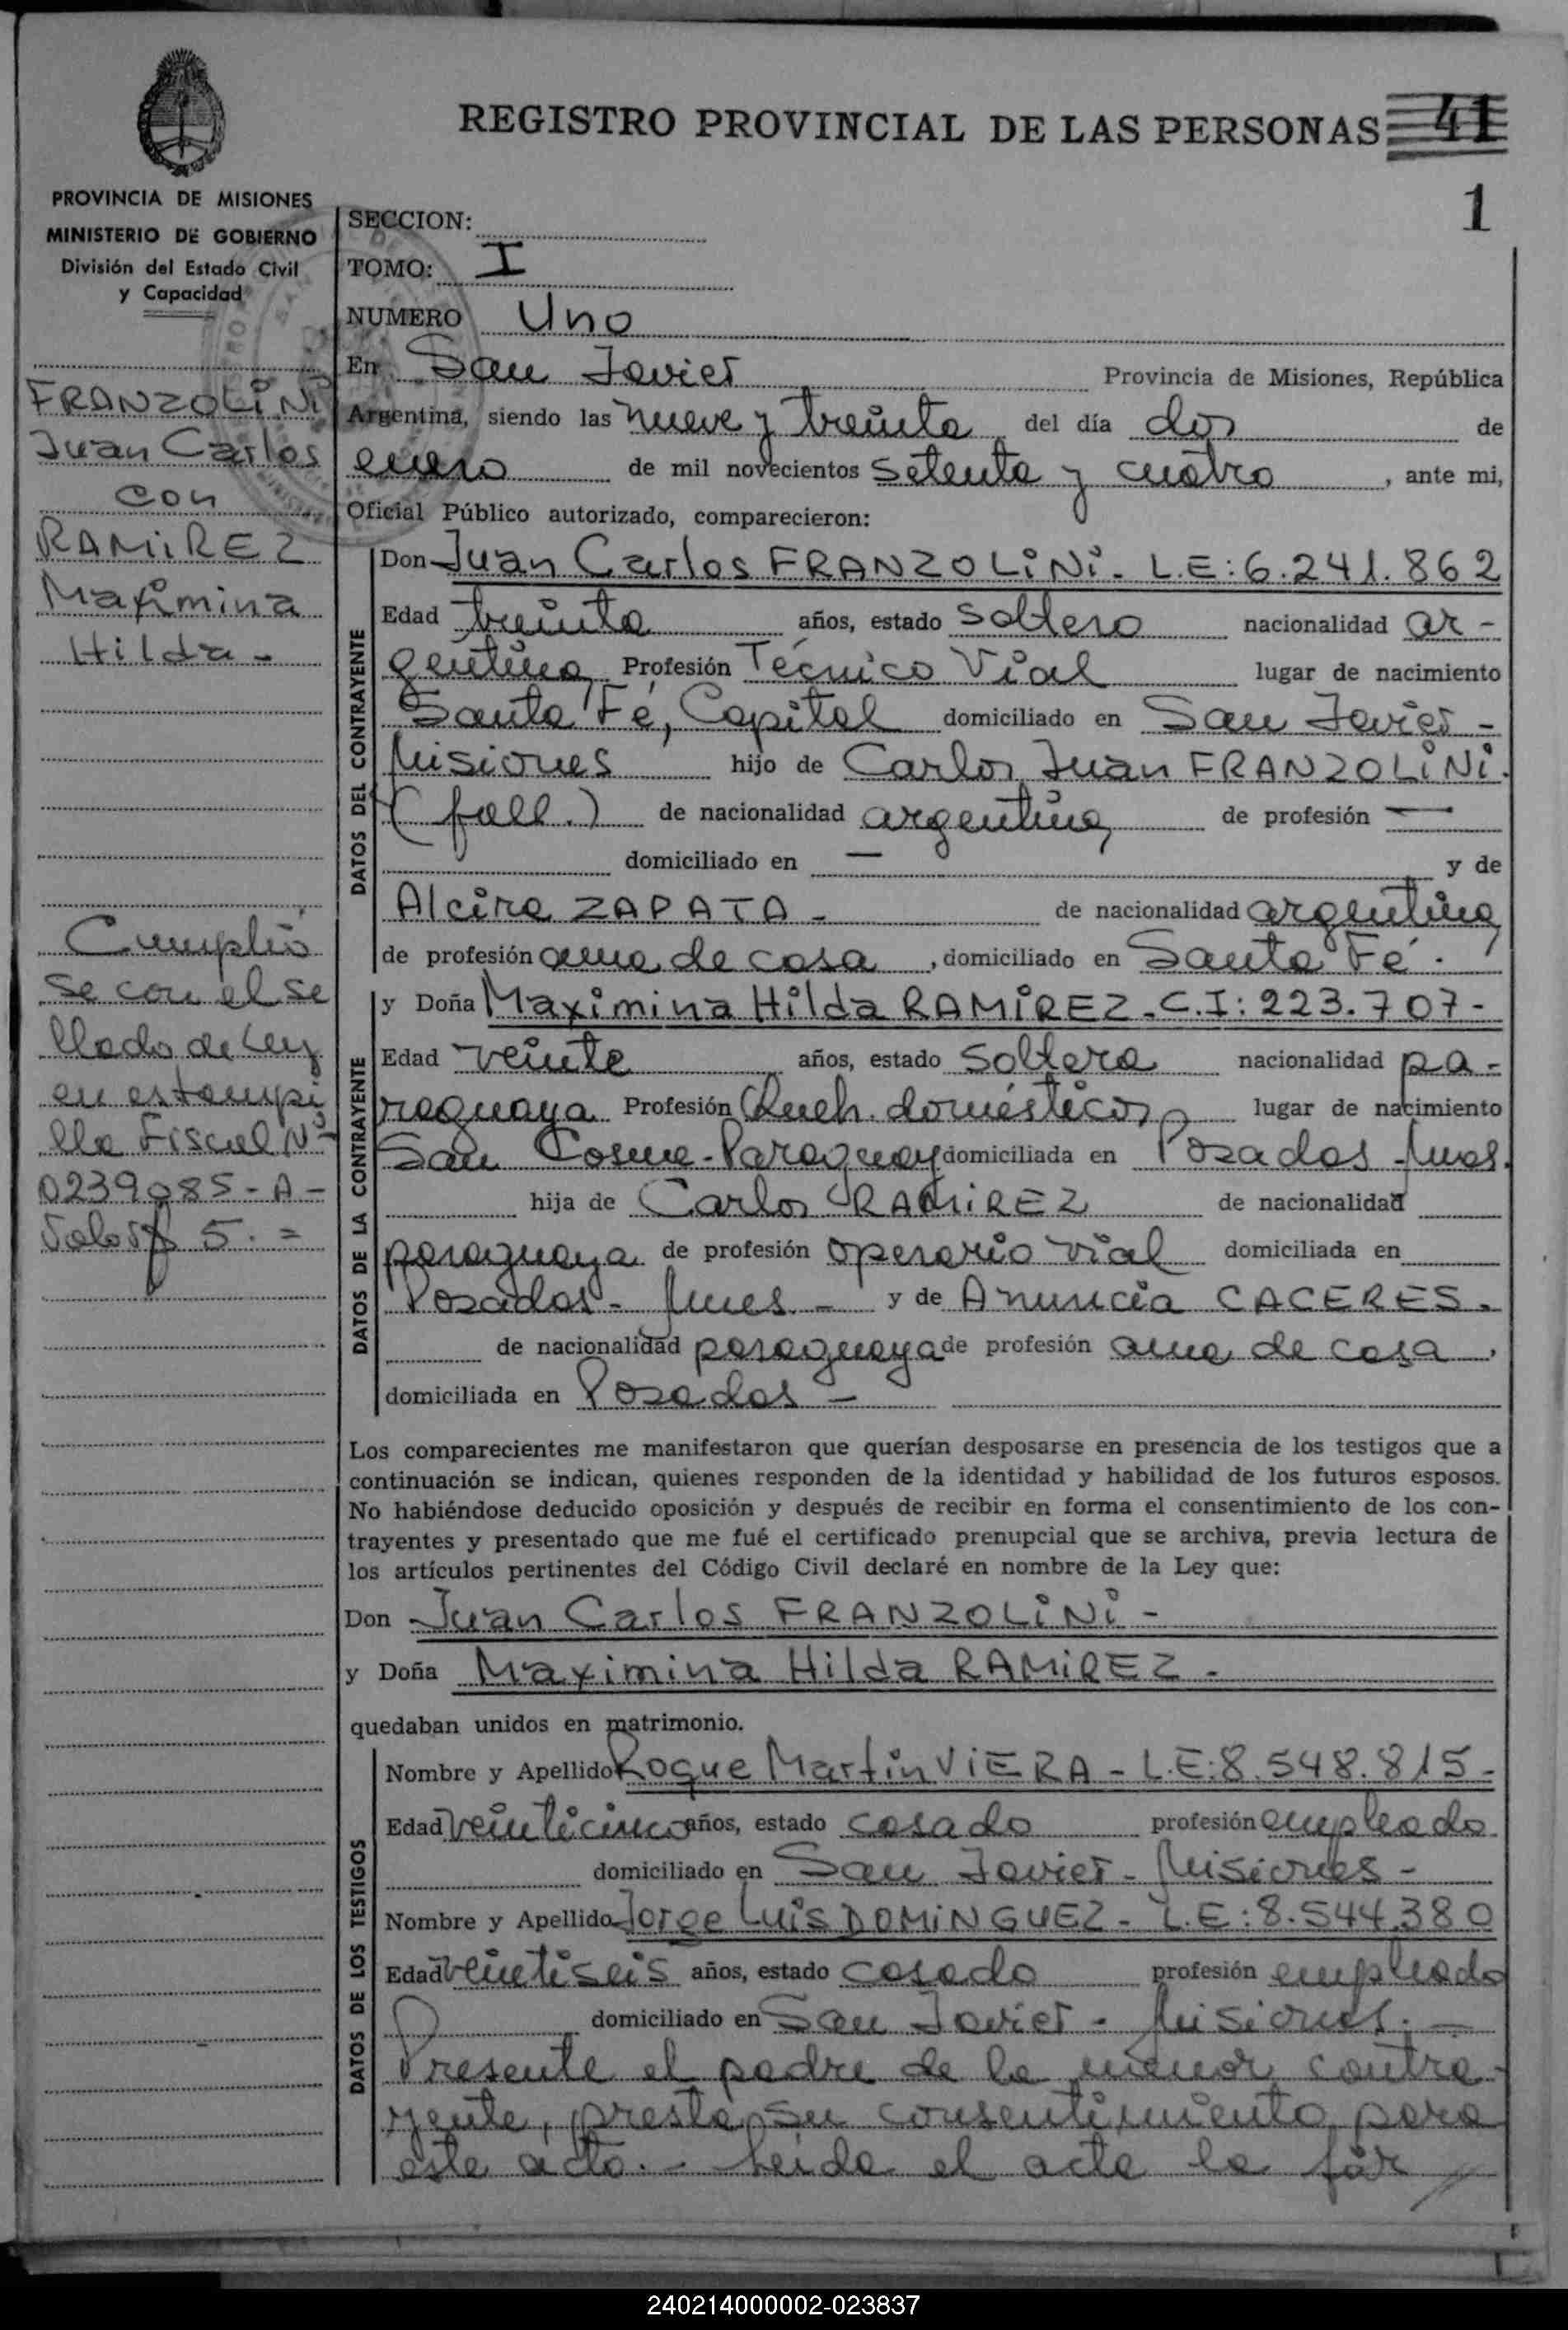 REGISTRO PROVINCIAL DE LAS PERSONAS 41
1
PROVINCIA DE MISIONES
MINISTERIO DE GOBIERNO
División del Estado Civil
y Capacidad
FRANZOLINI
Juan Carlos
con
RAMIREZ
Maximina
Hilda -
Cumplió
se con el se
llado de Ley
en estampi
lla Fiscal Nº
0239085-A-
Valor $ 5.=
SECCION:
TOMO: I
NUMERO Uno
En San Javier Provincia de Misiones, República
Argentina, siendo las nueve y treinta del día dos de
enero de mil novecientos setenta y cuatro, ante mi,
Oficial Público autorizado, comparecieron:
DATOS DEL CONTRAYENTE
Don Juan Carlos FRANZOLINI - L.E: 6.241.862
Edad treinta años, estado soltero nacionalidad ar-
gentina, Profesión Técnico Vial lugar de nacimiento
Santa Fé, Capital domiciliado en San Javier -
Misiones hijo de Carlos Juan FRANZOLINI.
(fall.) de nacionalidad argentina de profesión —
domiciliado en — y de
Alcira ZAPATA - de nacionalidad argentina
de profesión ama de casa, domiciliado en Santa Fé.
DATOS DE LA CONTRAYENTE
y Doña Maximina Hilda RAMIREZ - C.I: 223.707-
Edad veinte años, estado soltera nacionalidad pa-
raguaya Profesión Queh. domésticos lugar de nacimiento
San Cosme - Paraguay domiciliada en Posadas - Mnes.
hija de Carlos RAMIREZ de nacionalidad
paraguaya de profesión operario vial domiciliada en
Posadas - Mnes - y de Anuncia CACERES.
de nacionalidad paraguaya de profesión ama de casa,
domiciliada en Posadas -
Los comparecientes me manifestaron que querían desposarse en presencia de los testigos que a
continuación se indican, quienes responden de la identidad y habilidad de los futuros esposos.
No habiéndose deducido oposición y después de recibir en forma el consentimiento de los con-
trayentes y presentado que me fué el certificado prenupcial que se archiva, previa lectura de
los artículos pertinentes del Código Civil declaré en nombre de la Ley que:
Don Juan Carlos FRANZOLINI -
y Doña Maximina Hilda RAMIREZ -
quedaban unidos en matrimonio.
DATOS DE LOS TESTIGOS
Nombre y Apellido Roque Martin VIERA - L.E: 8.548.815 -
Edad veinticinco años, estado casado profesión empleado
domiciliado en San Javier - Misiones -
Nombre y Apellido Jorge Luis DOMINGUEZ - L.E: 8.544.380
Edad veintiseis años, estado casado profesión empleado
domiciliado en San Javier - Misiones. -
Presente el padre de la menor contra-
yente, presta su consentimiento para
este acto. - Leida el acta la fir
240214000002-023837